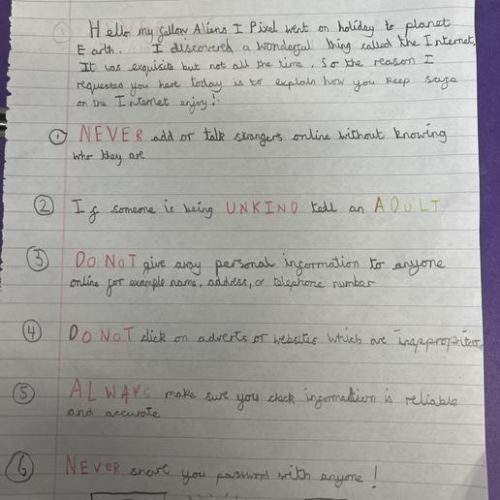 Hello my fellow Aliens I Pixel went on holiday to planet
Earth. I discovered a wondeful thing called the Internet,
It was exquisite but not all the time. So the reason I
requested you here today is to explain how you keep safe
on the Internet enjoy!
① NEVER add or talk strangers online without knowing
who they are
② If someone is being UNKIND tell an ADULT
③ DO NOT give away personal information to anyone
online for example name, address, or telephone number
④ DO NOT click on adverts or websites which are
⑤ ALWAYS make sure you check information is reliable
and accurate
⑥ NEVER share you password with anyone!